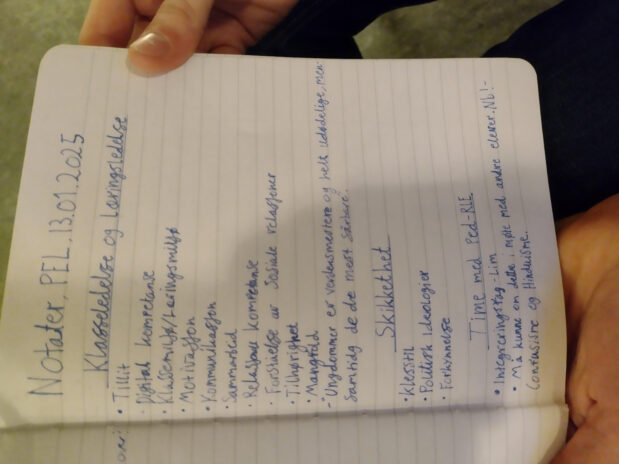 Notater, PEL, 13.01.2025
Klasseledelse og Læringsledelse
• Tillit
• Digital kompetanse
• Klassemiljø/Læringsmiljø
• Motivasjon
• Kommunikasjon
• Sammarbeid
• Relasjons kompetanse
• Forståelse av Sosiale relasjoner
• Tilhørighet
• Mangfold
- Ungdommer er verdensmestere og helt udødelige, men
samtidig de de mest sårbare.
Skikkethet
• Klesstil
• Politisk Ideologier
• Forkynnelse
Time med Ped-RLE
• Integreringsfag - Lim
• Må kunne om dette i møte med andre elever. Nb! -
og Hinduisme.